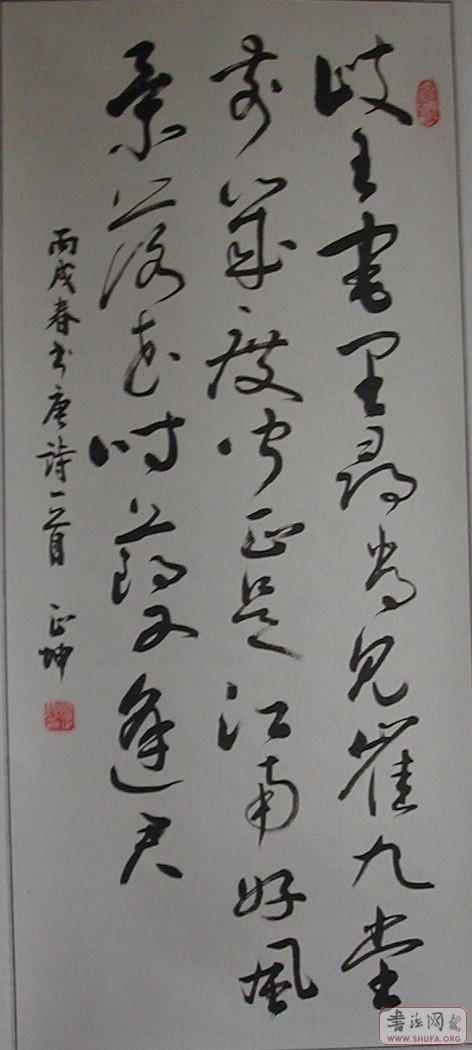 歧王宅里尋常見崔九堂
前幾度聞正是江南好風
景落花時節又逢君
丙戌春书唐詩一首 正坤
書法网
WWW.SHUFA.ORG